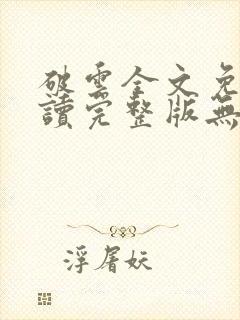 破雲全文免
讀完整版無
浮屠妖